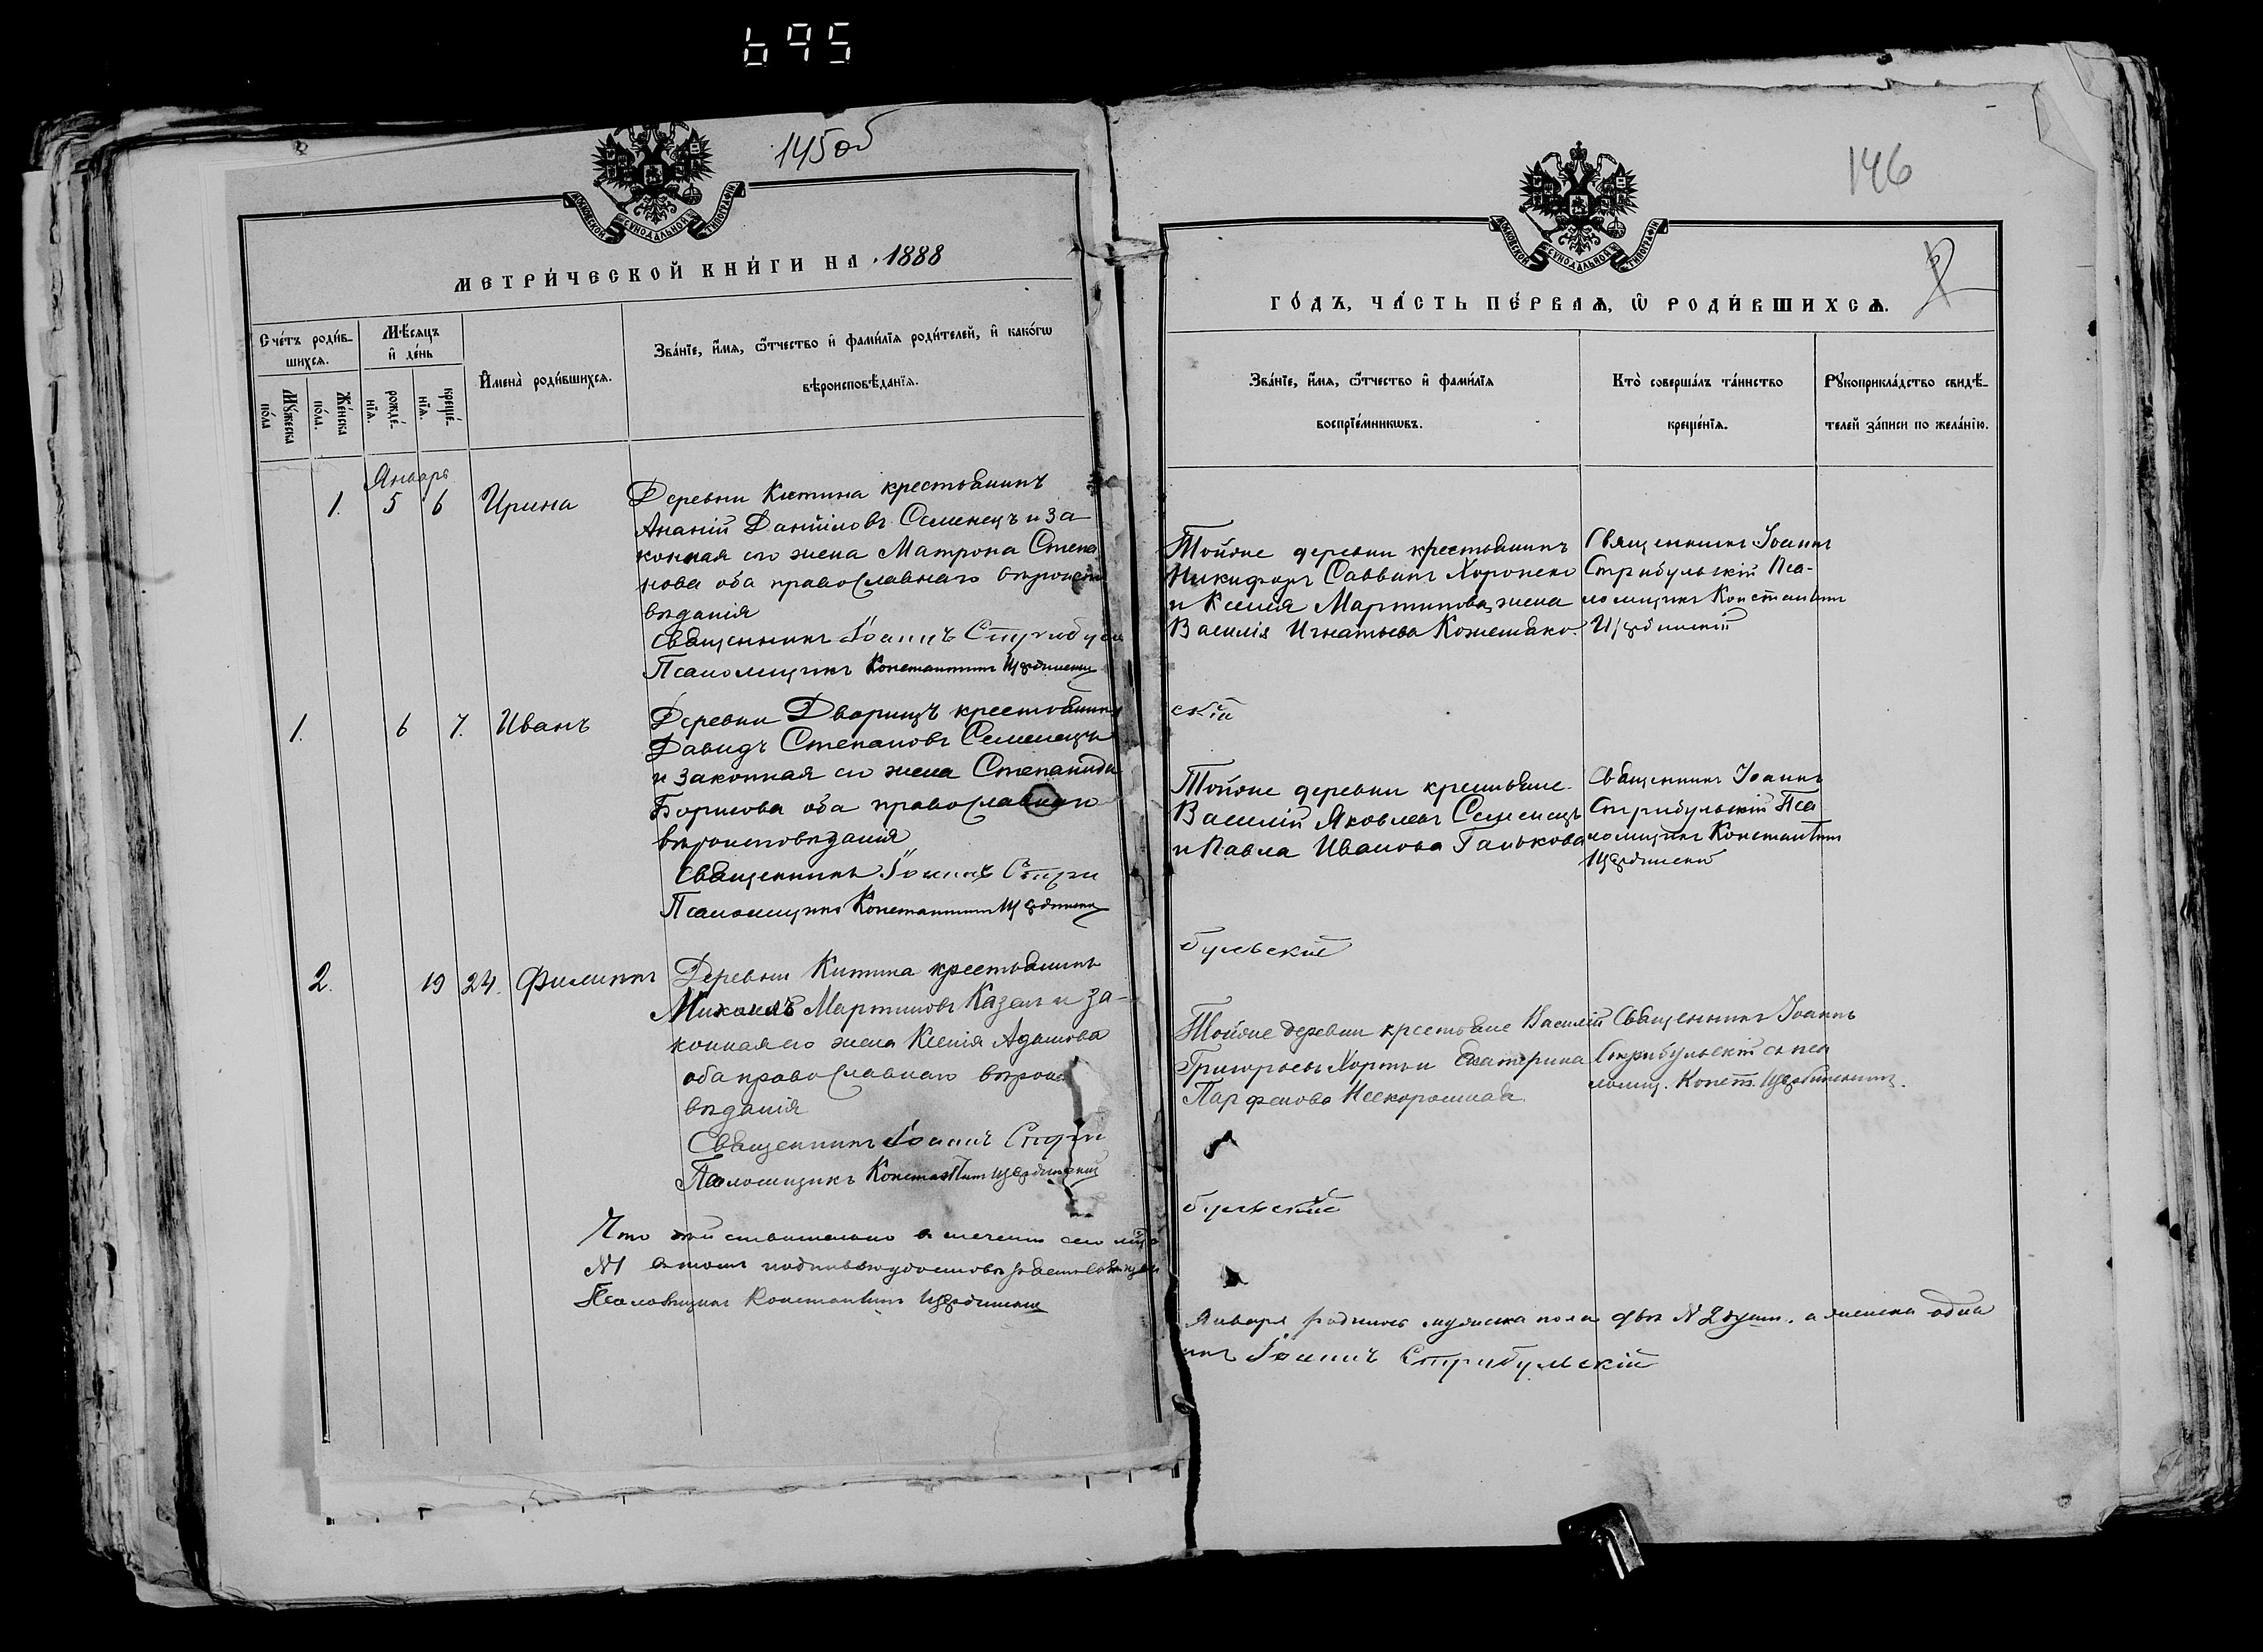 695
145об
МОСКОВСКОЙ СѴНОДАЛЬНОЙ ТИПОГРАФІИ
МЕТРИ́ЧЕСКОЙ КНИ́ГИ НА 1888
Сче́тъ роди́в-
шихсѧ.
Мѣ́сяцъ
и҆ де́нь
И҆мена̀ роди́вшихсѧ.
Зва́нїе, и҆́мѧ, ѻ҆́тчество и҆ фами́лїѧ роди́телей, и҆ како́гѡ
вѣроисповѣ́данїѧ.
Мꙋ́жеска
по́ла
Же́нска
по́ла.
рожде́-
нїѧ.
креще́-
нїѧ.
Январь
1. 5 6 Ирина
Деревни Китина крестьянинъ
Ананій Даніиловъ Семенецъ и за
конная его жена Матрона Степа
нова оба православнаго вѣроисп
вѣданія
Священникъ Іоаннъ Стрибул
Псаломщикъ Константинъ
1. 6 7. Иванъ
Деревни Дворищъ крестьянинъ
Давидъ Степановъ Семенецъ
и законная его жена Степанида
Борисова оба православнаго
вѣроисповѣданія
Священникъ Іоаннъ Стри
Псаломщикъ Константинъ
2. 19 24. Филиппъ
Деревни Китина крестьянинъ
Михаилъ Мартиновъ Казан и за-
конная его жена Ксенія Адамова
оба православнаго вѣроис
вѣданія
Священникъ Іоаннъ Стри
Псаломщикъ Константинъ
Что дѣйствительно въ теченіи сего
№1 въ томъ подписью удостовѣряемъ Священ
Псаломщикъ Константинъ
146
МОСКОВСКОЙ СѴНОДАЛЬНОЙ ТИПОГРАФІИ
ГО́ДЪ, ЧА́СТЬ ПЕ́РВАѦ, Ѡ҆ РОДИ́ВШИХСѦ.
2
Зва́нїе, и҆́мѧ, ѻ҆́тчество и҆ фами́лїѧ
воспрїе́мникѡвъ.
Кто̀ соверша́лъ та́инство
креще́нїѧ.
Рꙋкоприкла́дство свидѣ́-
телей за́писи по жела́нїю.
Тойже деревни крестьянинъ
Никифоръ Саввинъ
и Ксенія Мартинова жена
Василія Игнатьева
Священникъ Іоаннъ
Стрибульскій Пса-
ломщикъ Константинъ
скій
Тойже деревни крестьяне
Василій Яковлевъ Семенецъ
и Павла Иванова Ганькова
Священникъ Іоаннъ
Стрибульскій Пса
ломщикъ Константинъ
бульскій
Тойже деревни крестьяне Василій
Григорьевъ и Екатерина
Парфенова
Священникъ Іоаннъ
Стрибульскій съ пса
ломщ. Конст.
бульскій
Января родилось мужска пола два №2 душ. а женска одна
икъ Іоаннъ Стрибульскій